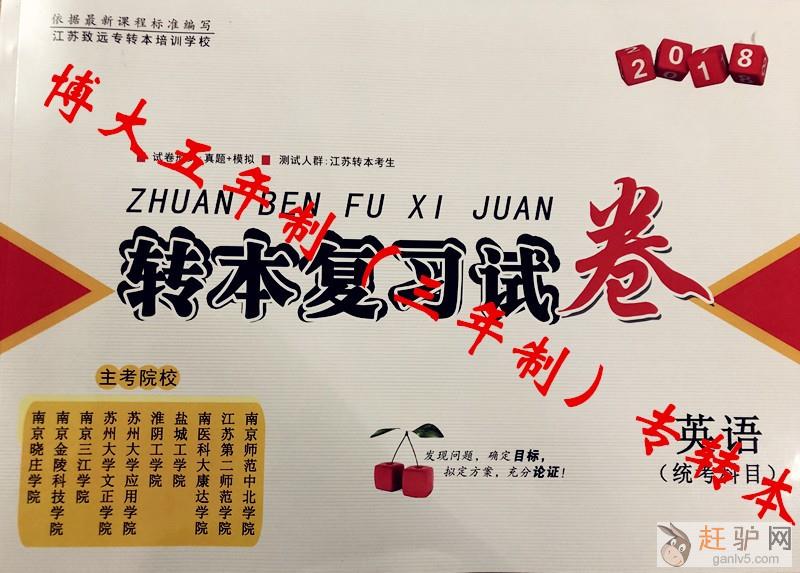 依据最新课程标准编写
江苏致远专转本培训学校
2018
试卷
真题+模拟
测试人群:江苏转本考生
ZHUAN BEN FU XI JUAN
转本复习试卷
主考院校
南京晓庄学院
南京金陵科技学院
南京三江学院
苏州大学文正学院
苏州大学应用学院
淮阴工学院
盐城工学院
南医科大康达学院
江苏第二师范学院
南京师范中北学院
发现问题,确定目标,
拟定方案,充分论证!
英语
(统考科目)
博大五年制(三年制)专转本
赶驴网
ganlv5.com